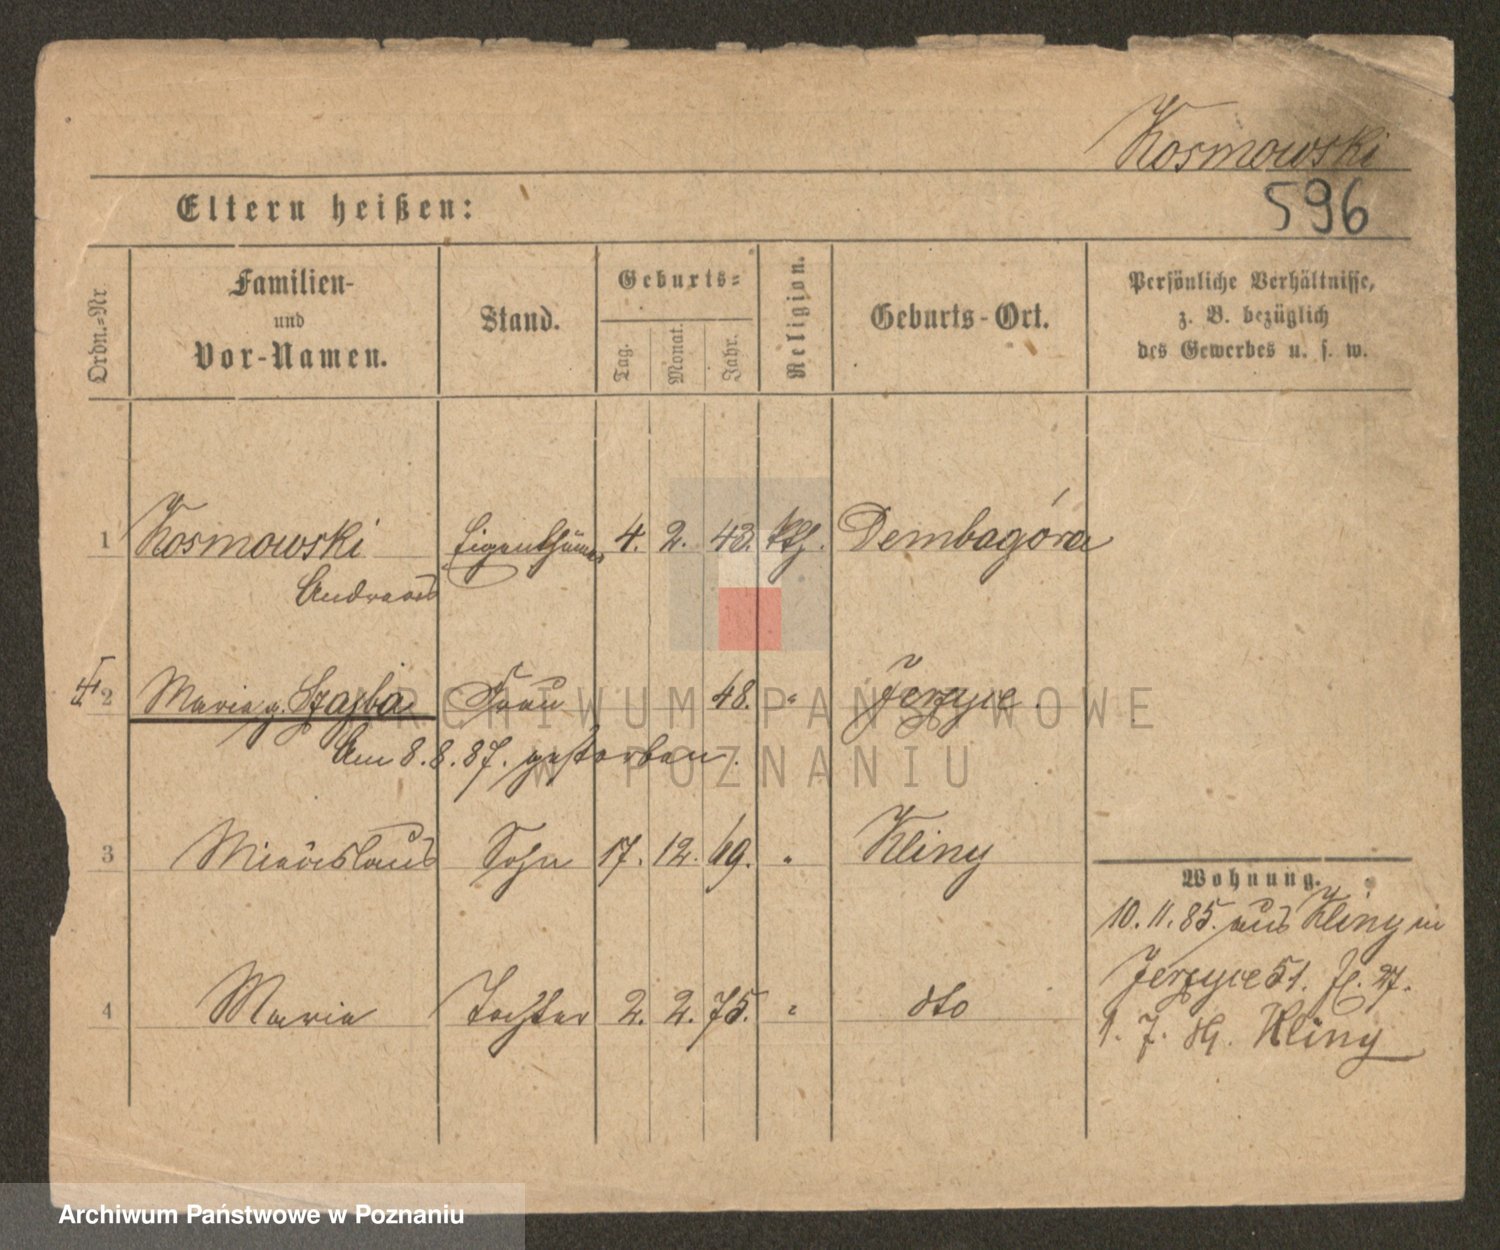 Kosmowski
596
Eltern heißen:
Ordn.-Nr
Familien-
und
Vor-Namen.
Stand.
Geburts-
Tag.
Monat.
Jahr.
Religion.
Geburts-Ort.
Persönliche Verhältnisse,
z. B. bezüglich
des Gewerbes u. s. w.
1 Kosmowski Eigenthümer 4. 2. 43. kth. Dembagóra
Andreas
2 Maria g. Szajba Frau 48. " Jerzyce.
Am 8.8.87. gestorben.
3 Miecislaus Sohn 17. 12. 69. " Kliny
4 Maria Tochter 2. 2. 75. " dto
Wohnung.
10.11.85. aus Kliny in
Jerzyce 51. fl. 27.
1. 7. Kliny
ARCHIWUM PAŃSTWOWE
W POZNANIU
Archiwum Państwowe w Poznaniu